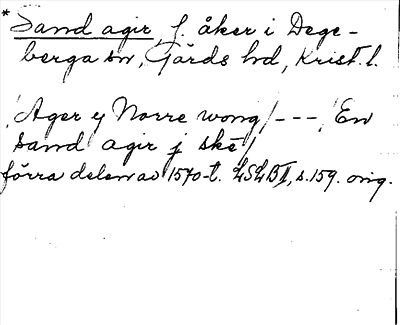 * Sand agir, f. åker i Dege-
berga sn, Gärds hd, Krist. l.
/Ager y Norre wong/ --- /En
sand agir j skē/
förra delen av 1570-t. LSLB II, s. 159. orig.